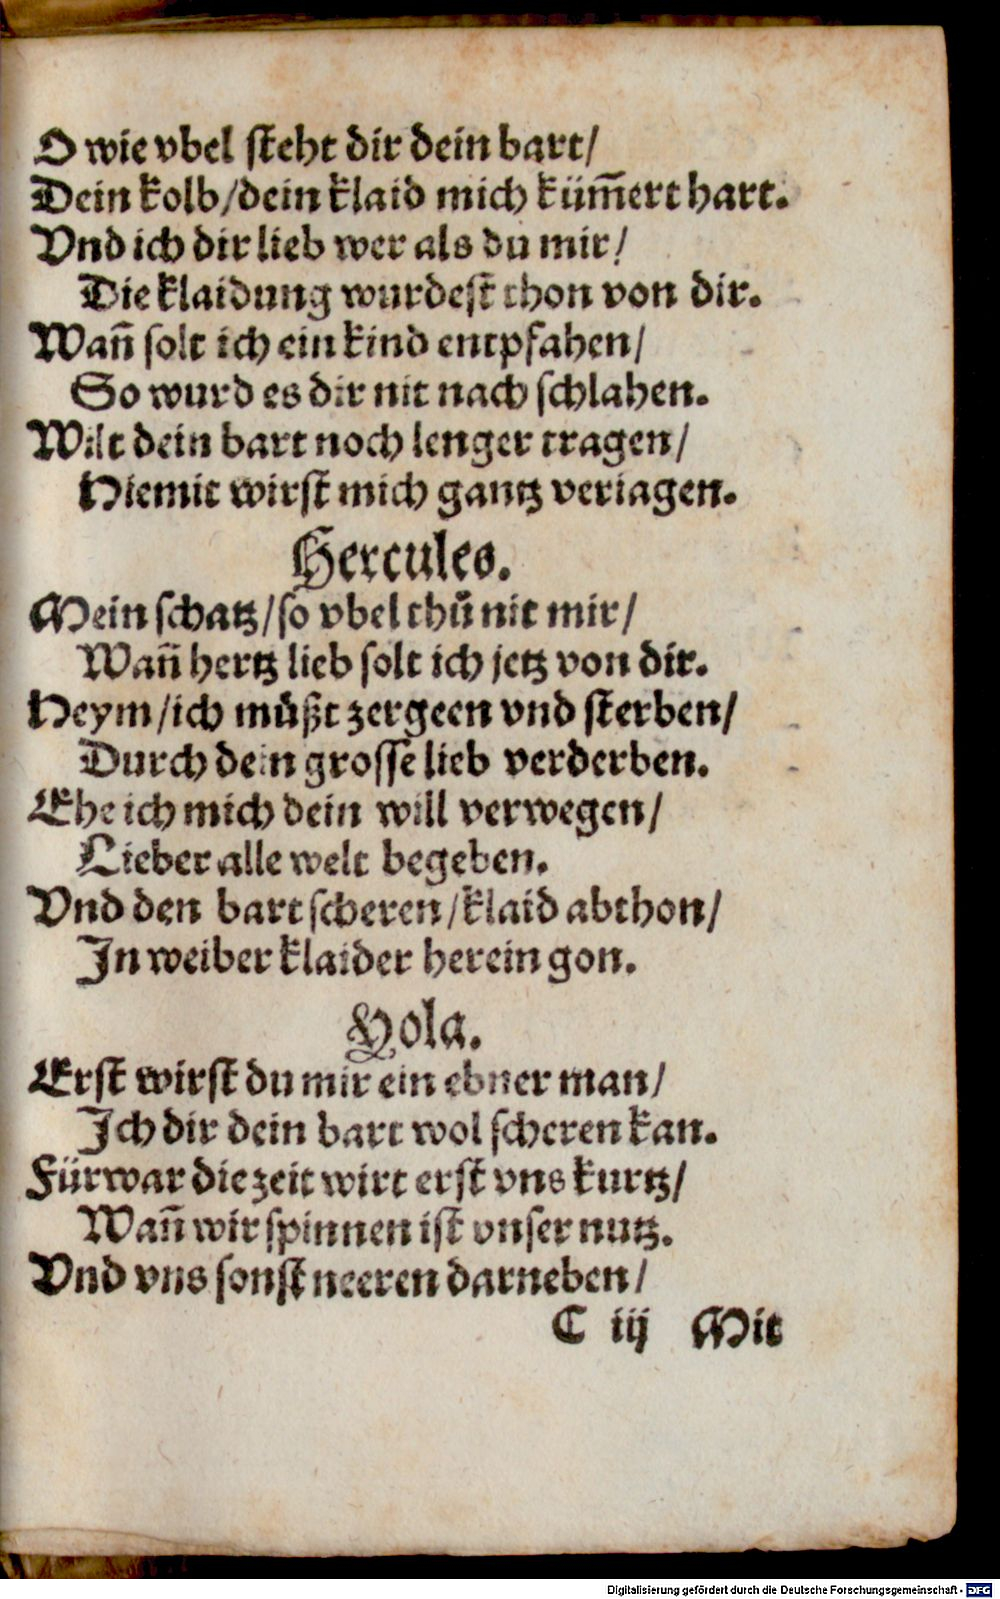 O wie vbel steht dir dein bart/
Dein kolb/dein klaid mich küm̃ert hart.
Vnd ich dir lieb wer als du mir/
Die klaidung wurdest thon von dir.
Wañ solt ich ein kind entpfahen/
So wurd es dir nit nach schlahen.
Wilt dein bart noch lenger tragen/
Hiemit wirst mich gantz veriagen.
Hercules.
Mein schatz/so vbel thů nit mir/
Wañ hertz lieb solt ich jetz von dir.
Heym/ich můßt zergeen vnd sterben/
Durch dein grosse lieb verderben.
Ehe ich mich dein will verwegen/
Lieber alle welt begeben.
Vnd den bart scheren/klaid abthon/
In weiber klaider herein gon.
Yola.
Erst wirst du mir ein ebner man/
Ich dir dein bart wol scheren kan.
Fürwar die zeit wirt erst vns kurtz/
Wañ wir spinnen ist vnser nutz.
Vnd vns sonst neeren darneben/
C iij Mit
Digitalisierung gefördert durch die Deutsche Forschungsgemeinschaft - DFG